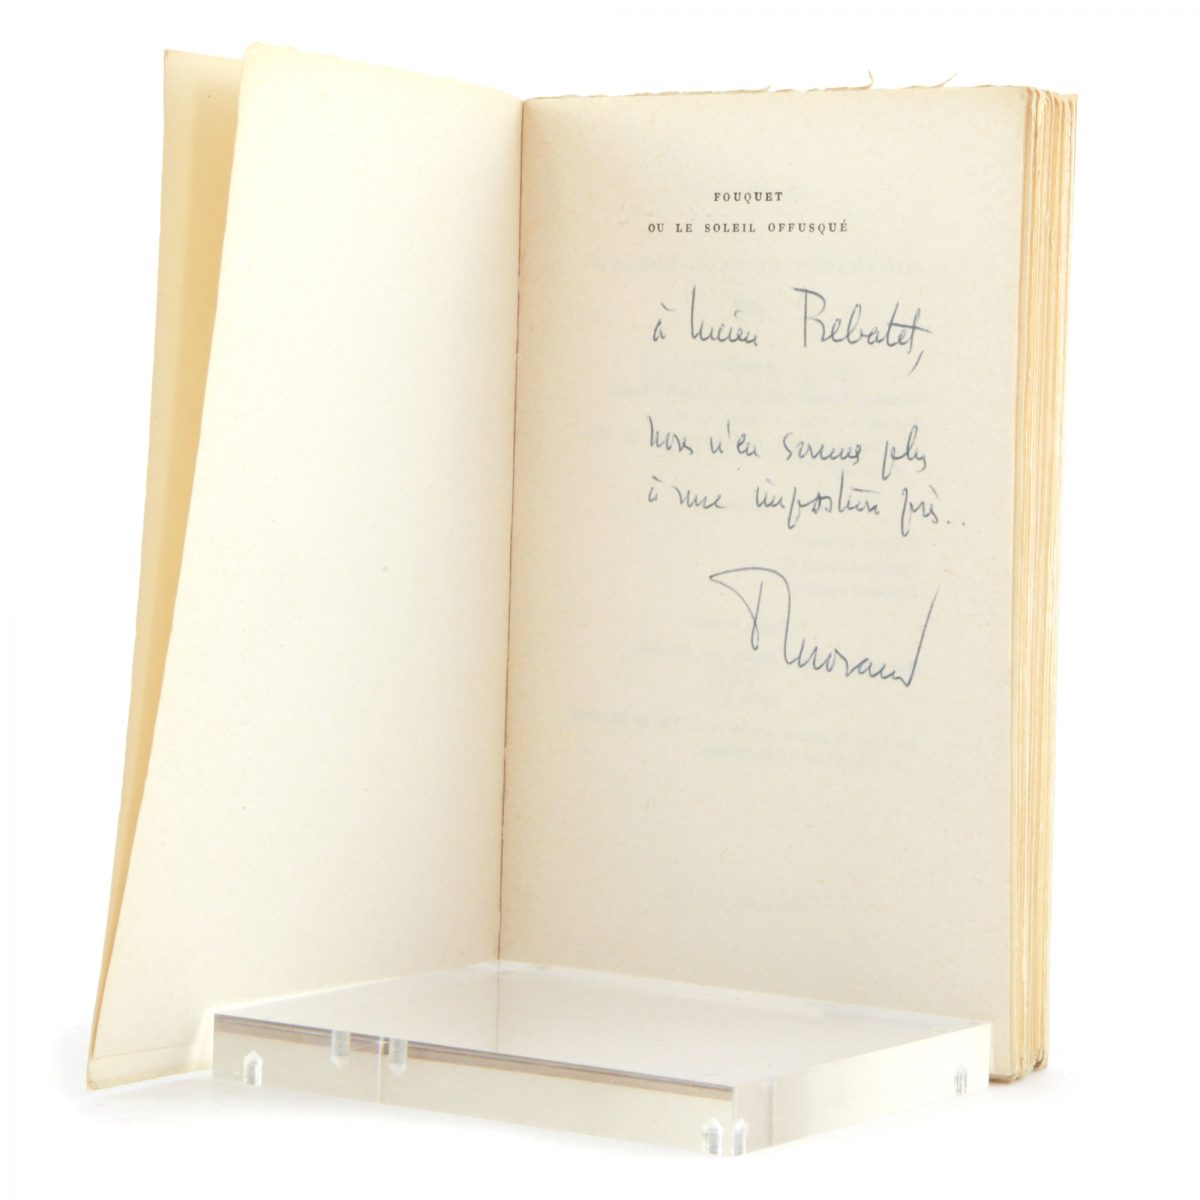 FOUQUET
OU LE SOLEIL OFFUSQUÉ
à Lucien Rebatet,
nous n'en sommes plus
à une imposture près..
Morand